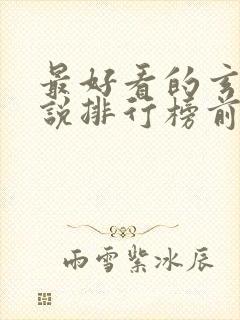 最好看的玄
說排行榜前
雨雪紫冰辰